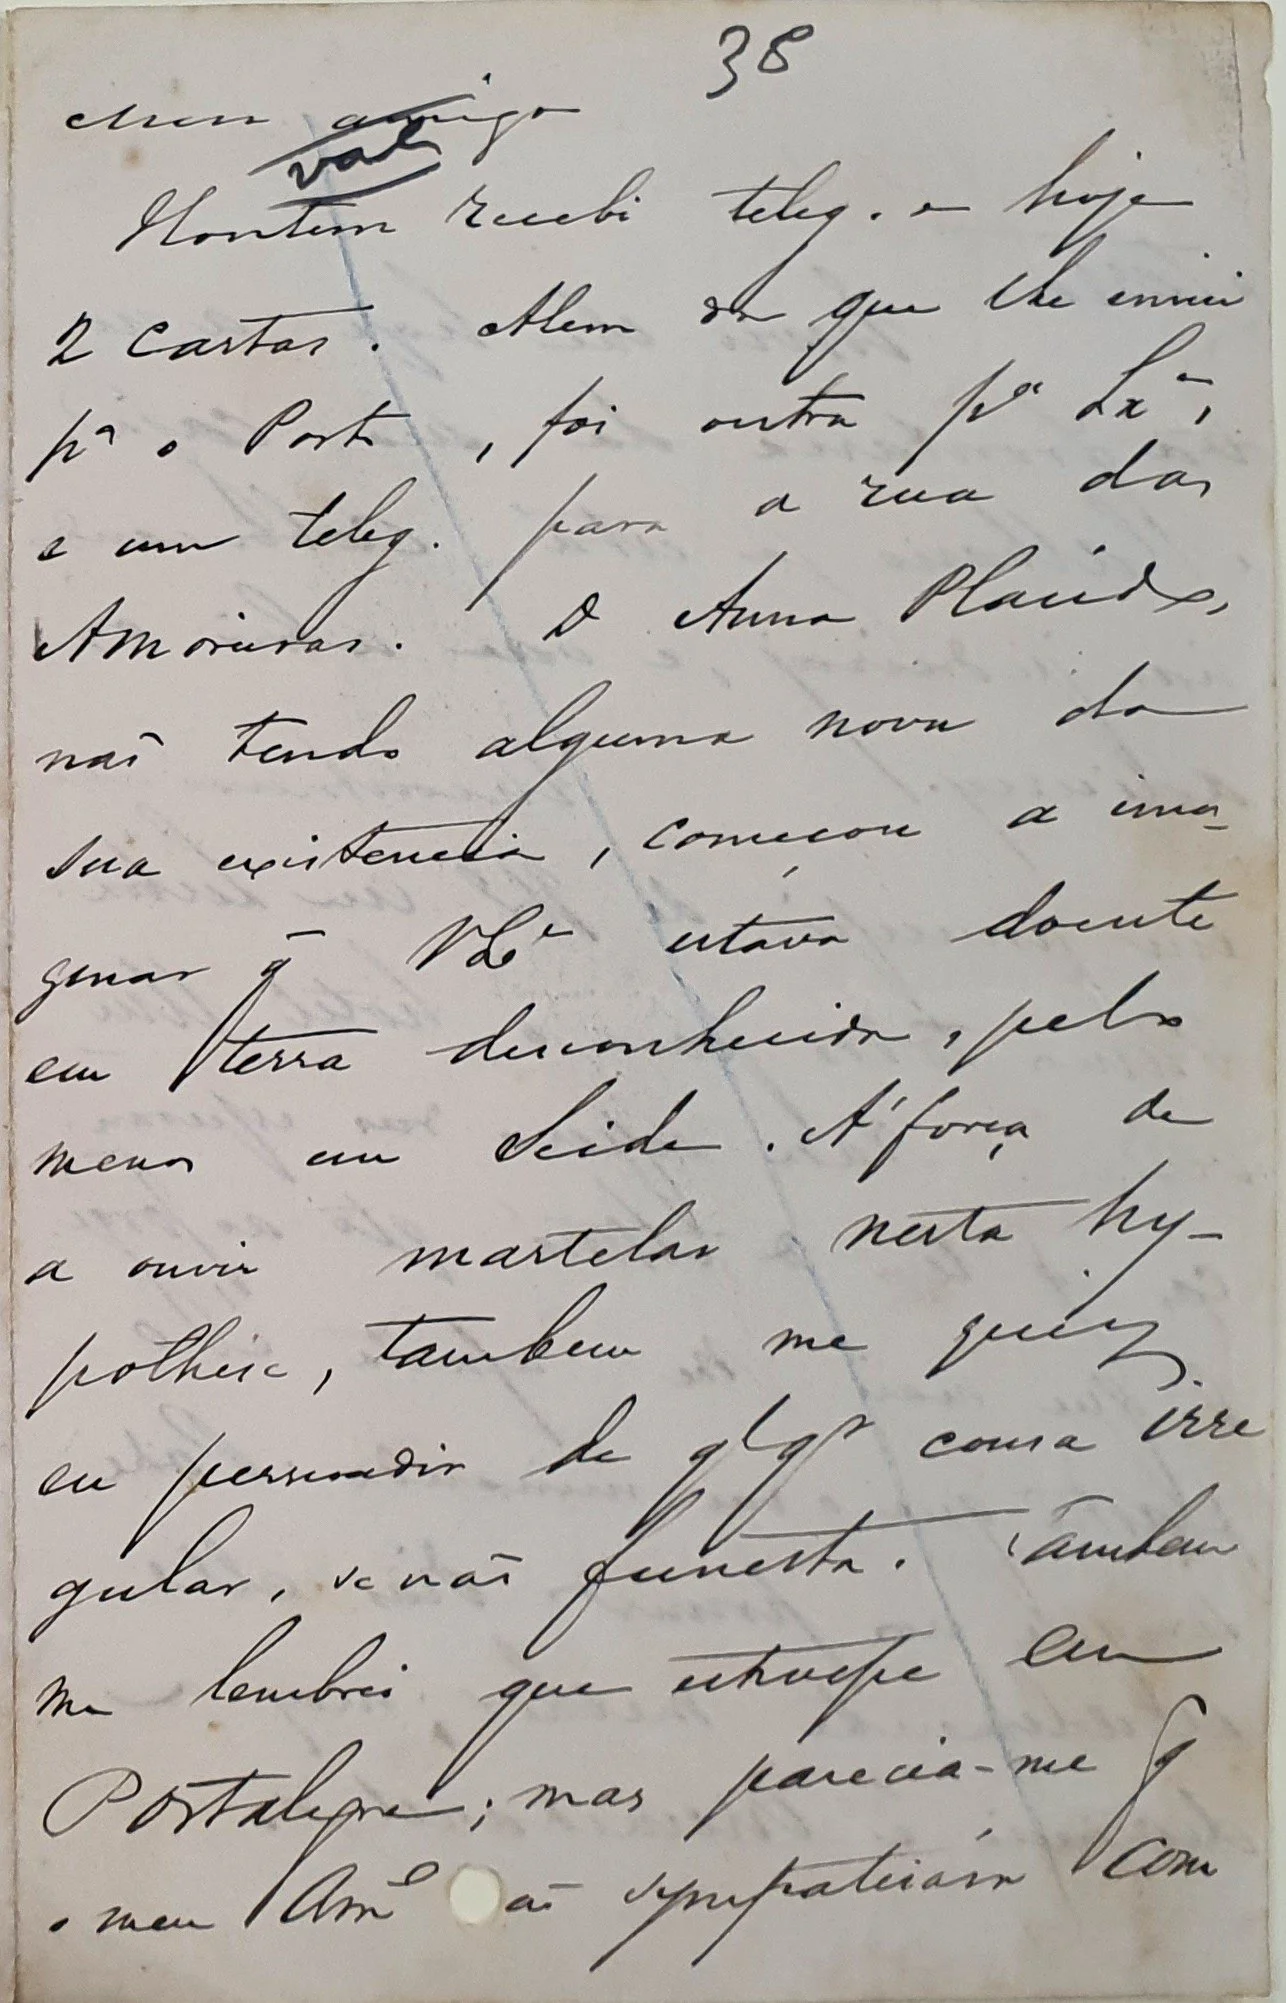 38
Meu amigo
vae
Hontem recebi teleg. e hoje
2 cartas. Alem da que lhe enviei
pª o Porto, foi outra pª Lxª,
e um teleg. para a rua das
Amoreiras. D Anna Placido,
não tendo alguma nova da
sua existencia, começou a ima-
ginar q̃ VExª estava doente
em terra desconhecida, pelo
menos em Seide. A' força de
a ouvir martelar nesta hy-
pothese, tambem me quiz
eu persuadir de qlqr cousa irre
gular, se não funesta. Tambem
me lembrei que estivesse em
Portalegre; mas parecia-me q
o meu Amº não sympatisára com